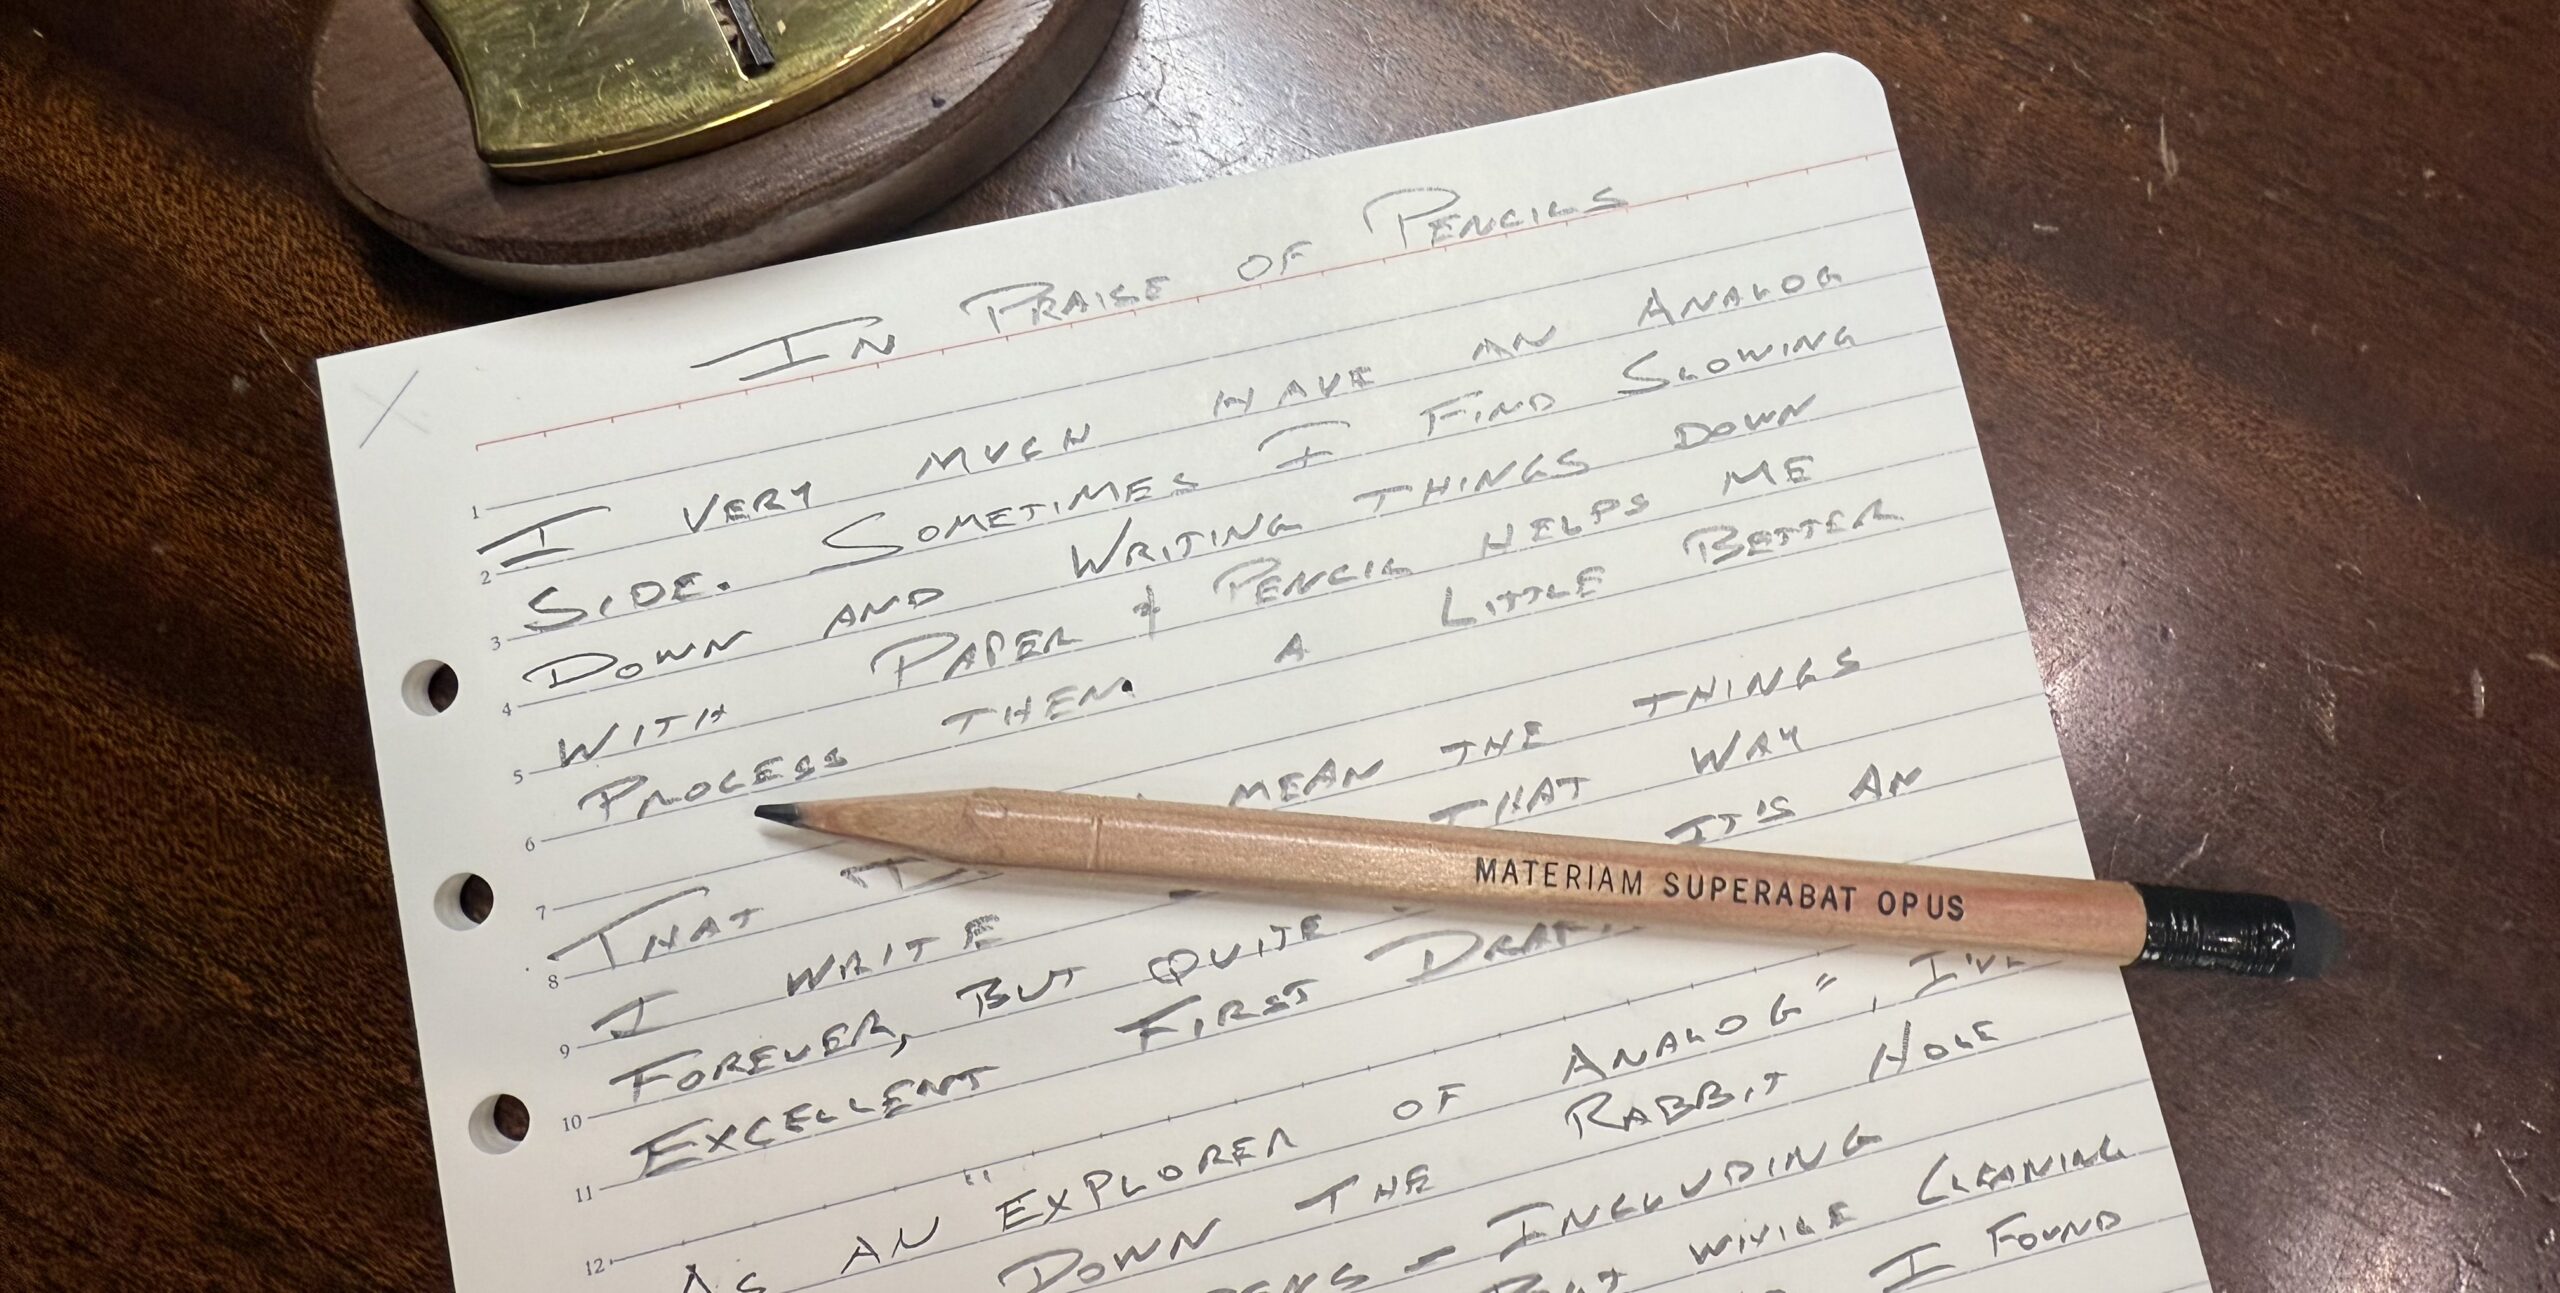 In Praise of Pencils
1 I very much have an Analog
2 Side. Sometimes I Find Slowing
3 Down and Writing things down
4 with Paper + Pencil helps me
5 Process them. a Little Better
6
7 That mean the things
8 I write that way
9 Forever, But quite It's An
10 Excellent First Draft
11
12 As an "Explorer of Analog", I've
Down the Rabbit Hole
- Including
But while Cleaning
I Found
MATERIAM SUPERABAT OPUS